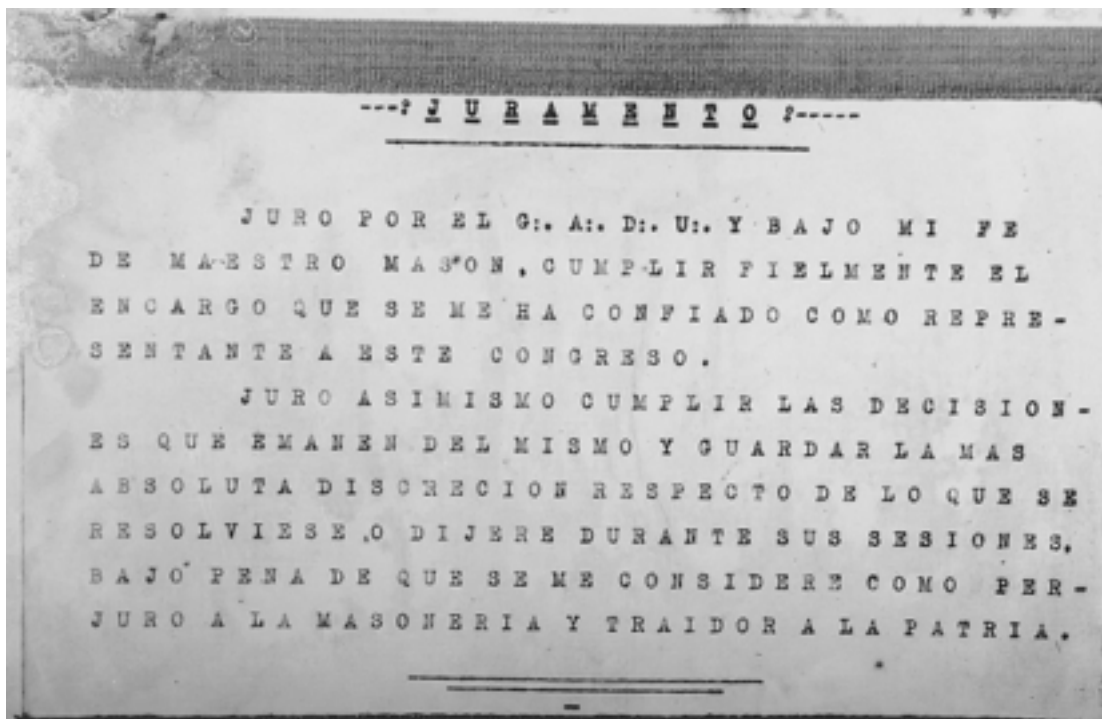 ---? J U R A M E N T O ?-----
JURO POR EL G:. A:. D:. U:. Y BAJO MI FE
DE MAESTRO MASON, CUMPLIR FIELMENTE EL
ENCARGO QUE SE ME HA CONFIADO COMO REPRE-
SENTANTE A ESTE CONGRESO.
JURO ASIMISMO CUMPLIR LAS DECISION-
ES QUE EMANEN DEL MISMO Y GUARDAR LA MAS
ABSOLUTA DISCRECION RESPECTO DE LO QUE SE
RESOLVIESE,O DIJERE DURANTE SUS SESIONES,
BAJO PENA DE QUE SE ME CONSIDERE COMO PER-
JURO A LA MASONERIA Y TRAIDOR A LA PATRIA.